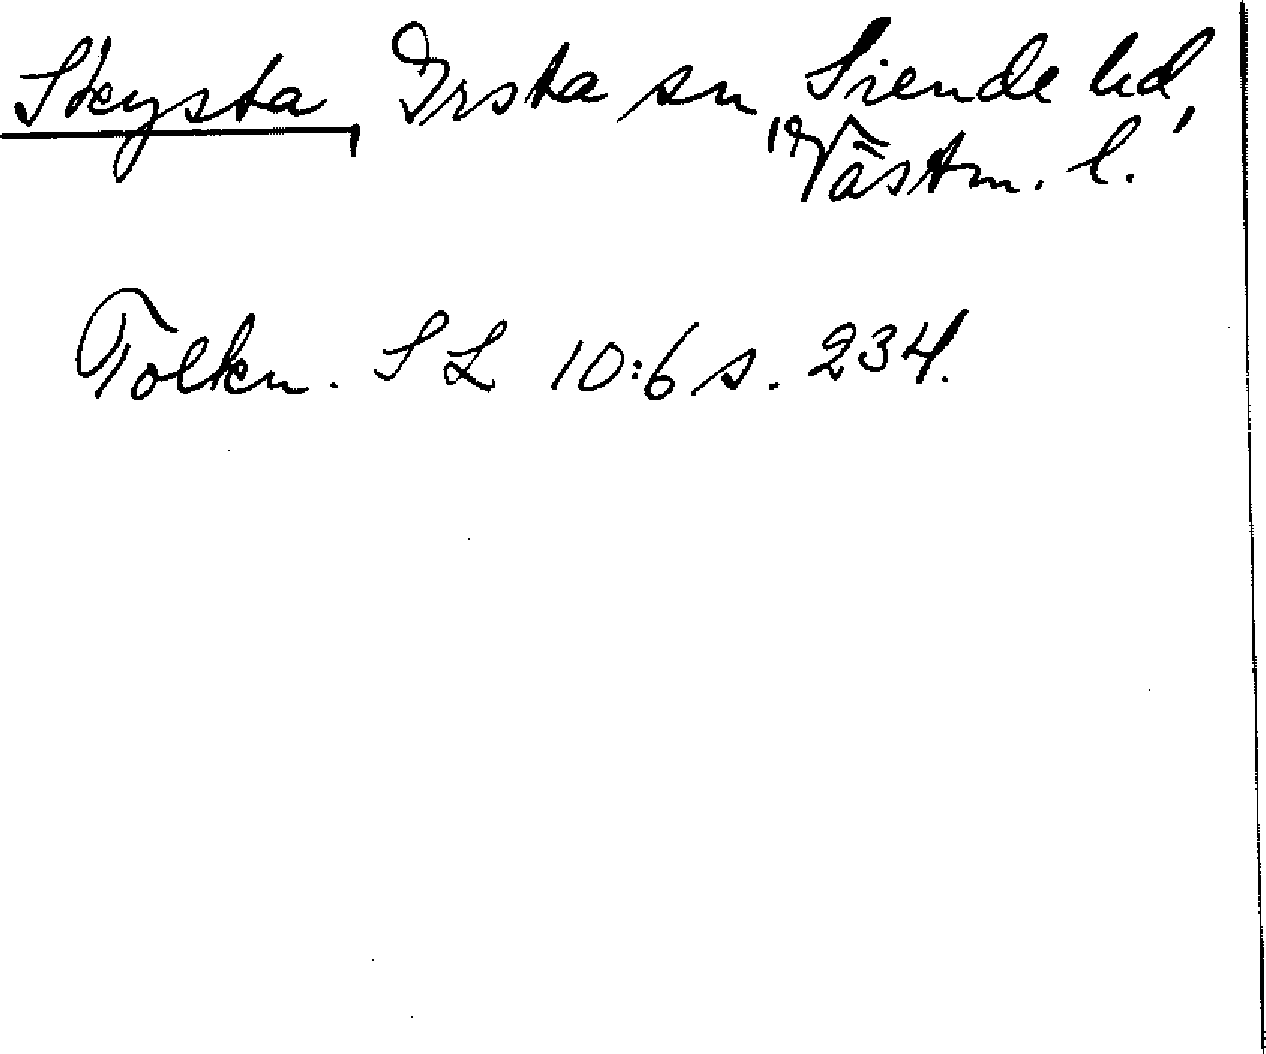 Skysta, Irsta sn, Siende hd,
Västm. l.
Tolkn. SL 10:6 s. 234.